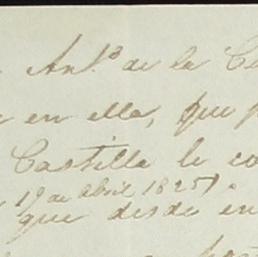 Ant.º de la
en ella, que
Castilla le co
19 de Abril 1825).
que desde en